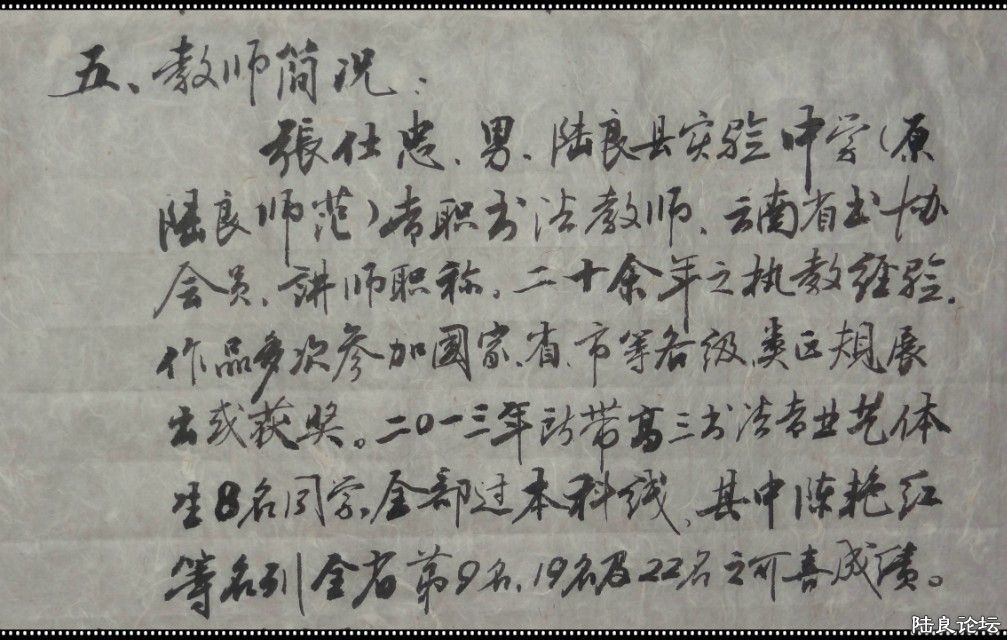 五、教师简况：
張仕忠、男、陆良县实验中学（原
陆良师范）专职书法教师、云南省书协
会员、讲师职称，二十余年之执教经验．
作品多次参加國家、省、市等各级、类正规展
出或获奖。二〇一三年所带高三书法专业艺体
生8名同学，全部过本科线，其中陈艳红
等名列全省第9名、19名及22名之可喜成绩。
陆良论坛